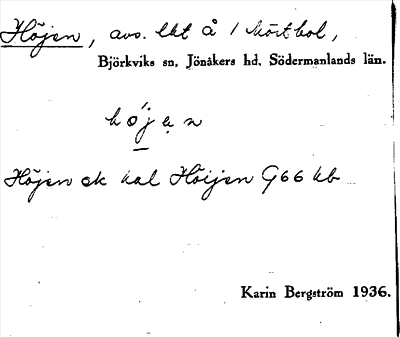 Höjen, avs. lht å 1 Mörtbol,
Björkviks sn, Jönåkers hd. Södermanlands län.
höjẹn
Höjen ek kal Höijen G66 hb
Karin Bergström 1936.